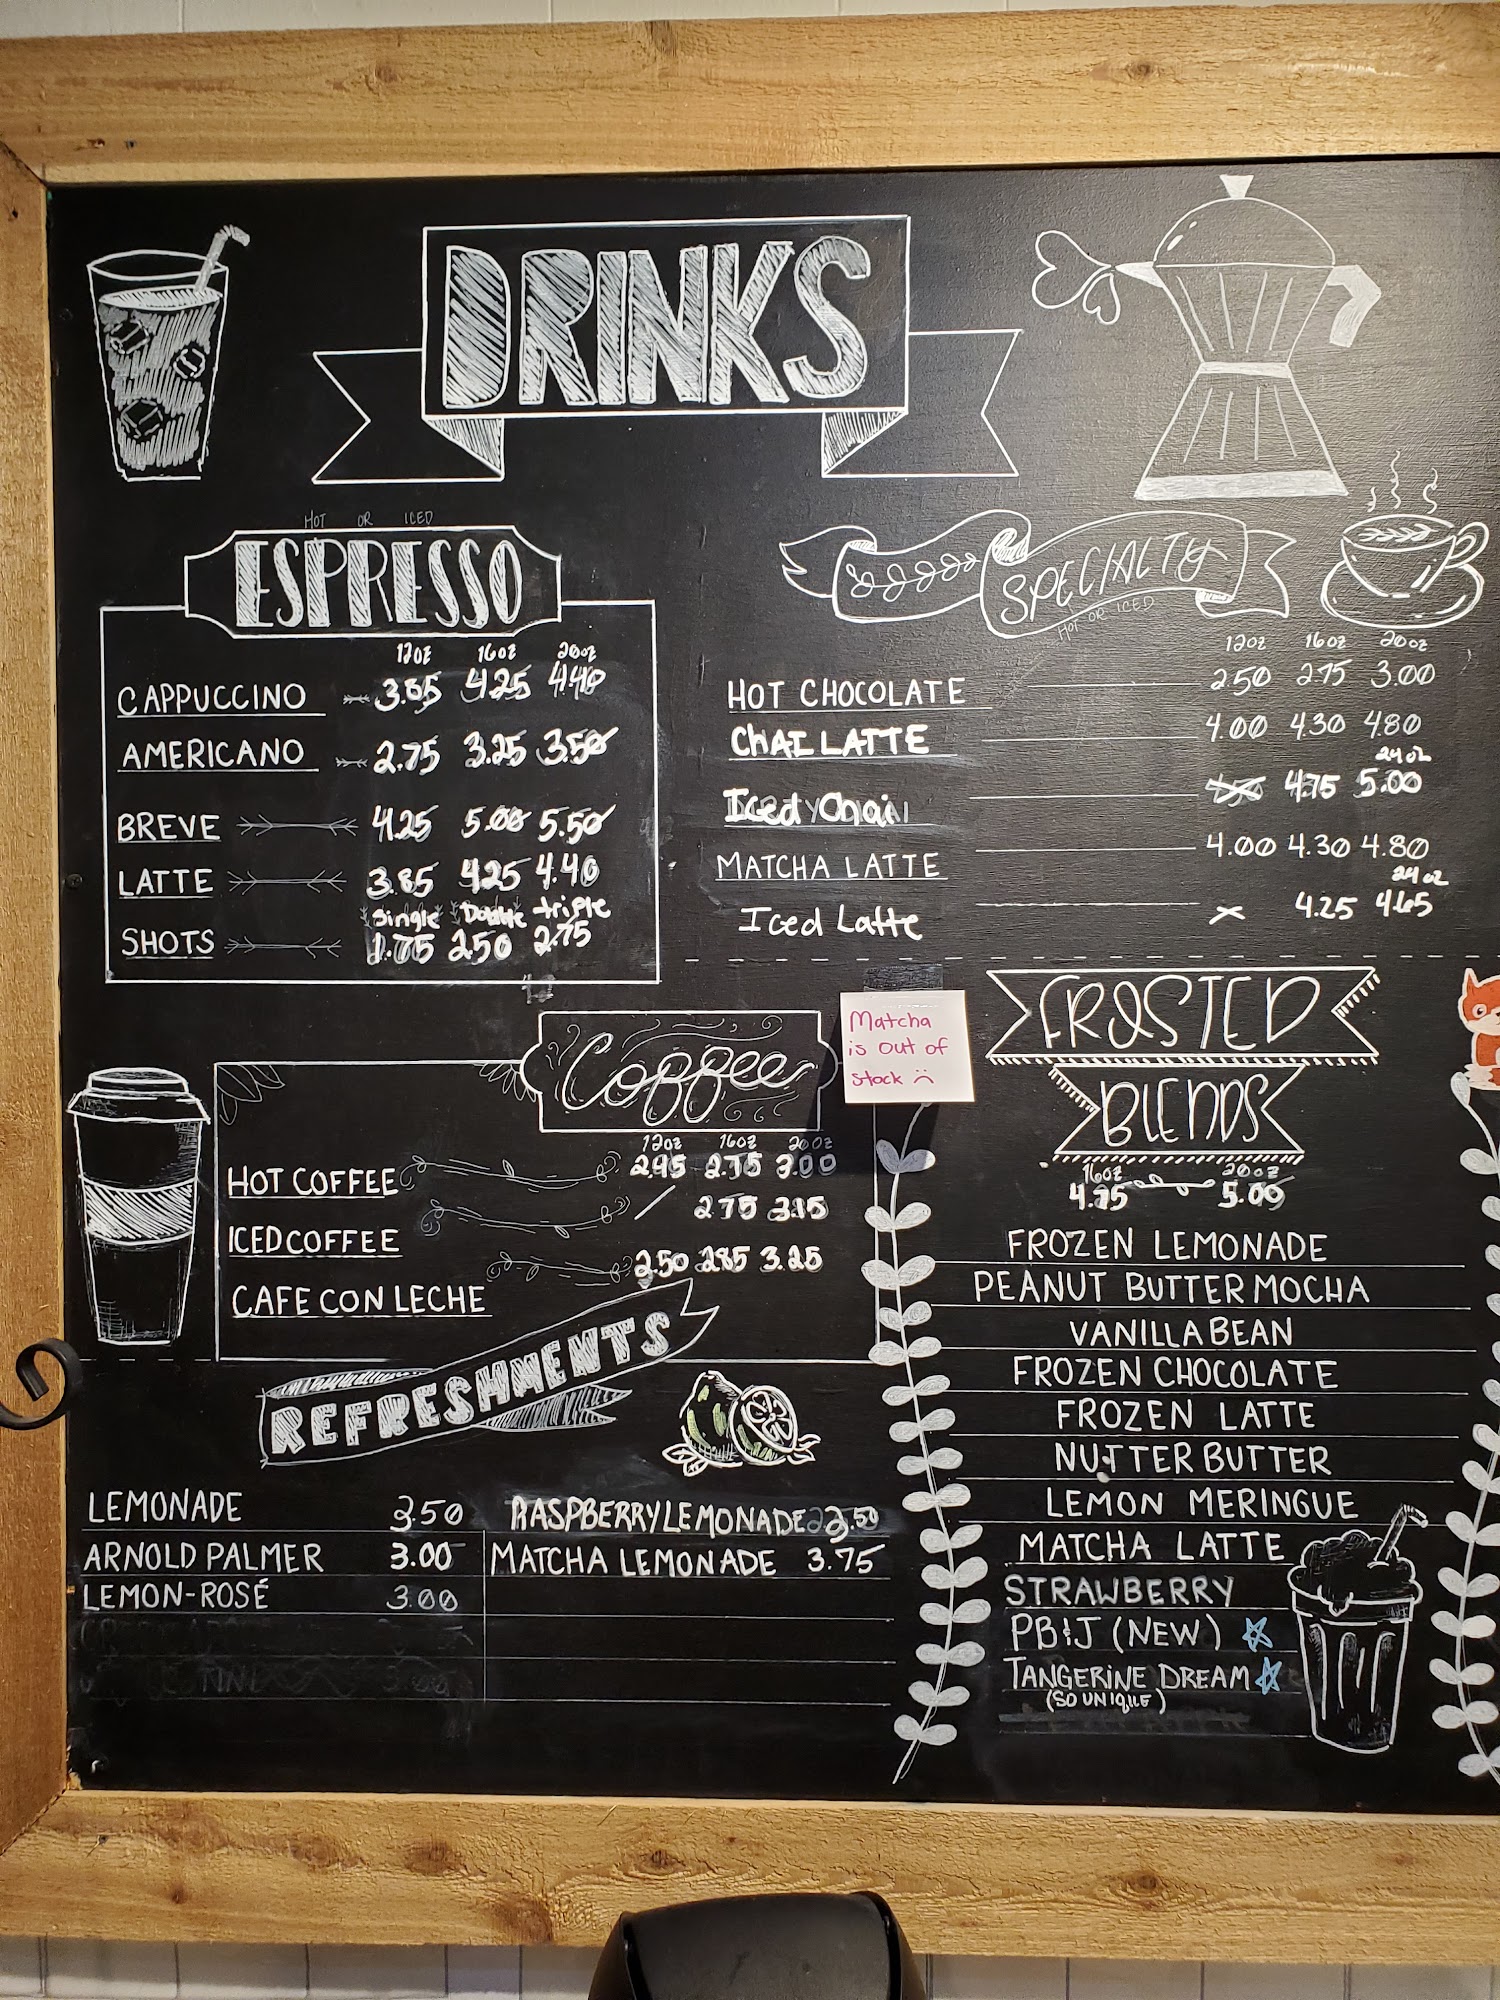 DRINKS
HOT OR ICED
ESPRESSO
12oz 16oz 20oz
CAPPUCCINO 3.85 4.25 4.40
AMERICANO 2.75 3.25 3.50
BREVE 4.25 5.00 5.50
LATTE 3.85 4.25 4.40
Single Double triple
SHOTS 1.75 2.50 2.75
SPECIALTY
HOT OR ICED
12oz 16oz 20oz
HOT CHOCOLATE 2.50 2.75 3.00
CHAI LATTE 4.00 4.30 4.80
24oz
Iced Chai 4.75 5.00
MATCHA LATTE 4.00 4.30 4.80
24oz
Iced Latte x 4.25 4.65
Coffee
12oz 16oz 20oz
HOT COFFEE 2.75 3.00
ICED COFFEE 2.75 3.15
CAFE CON LECHE 2.50 2.85 3.25
Matcha
is out of
stock
REFRESHMENTS
LEMONADE 2.50
ARNOLD PALMER 3.00
LEMON-ROSÉ 3.00
RASPBERRY LEMONADE
MATCHA LEMONADE 3.75
FROSTED
BLENDS
16oz 20oz
4.75 5.00
FROZEN LEMONADE
PEANUT BUTTER MOCHA
VANILLA BEAN
FROZEN CHOCOLATE
FROZEN LATTE
NUTTER BUTTER
LEMON MERINGUE
MATCHA LATTE
STRAWBERRY
PB&J (NEW)
TANGERINE DREAM
(SO UNIQUE)